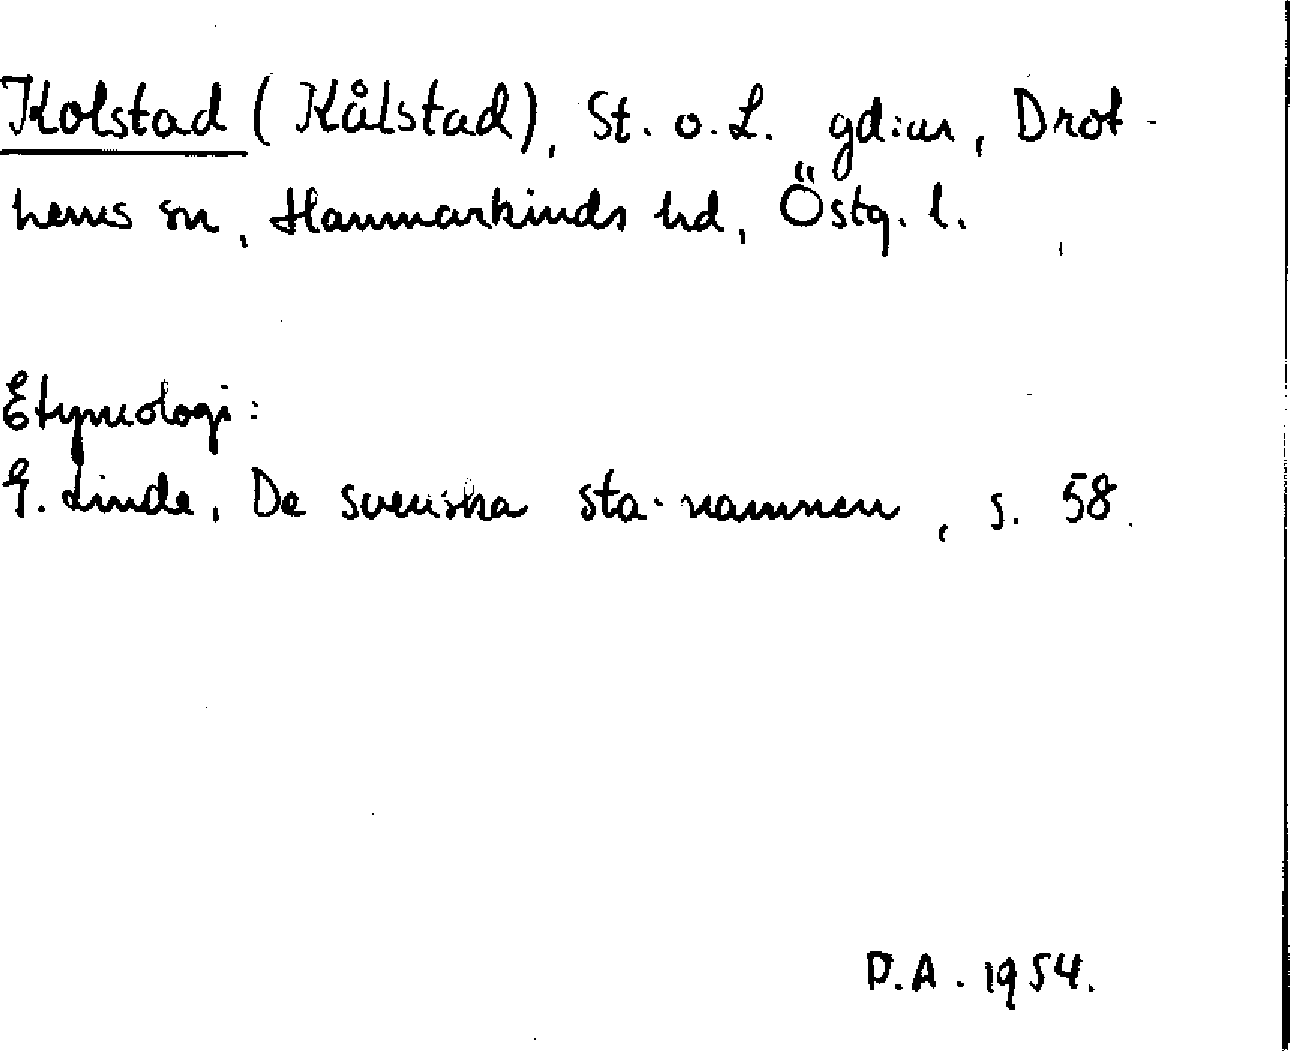 Kolstad (Kålstad), St. o. L. gd:ar, Drot-
hems sn, Hammarkinds hd, Östg. l.
Etymologi:
G. Linde, De svenska sta-namnen, s. 58.
D.A. 1954.